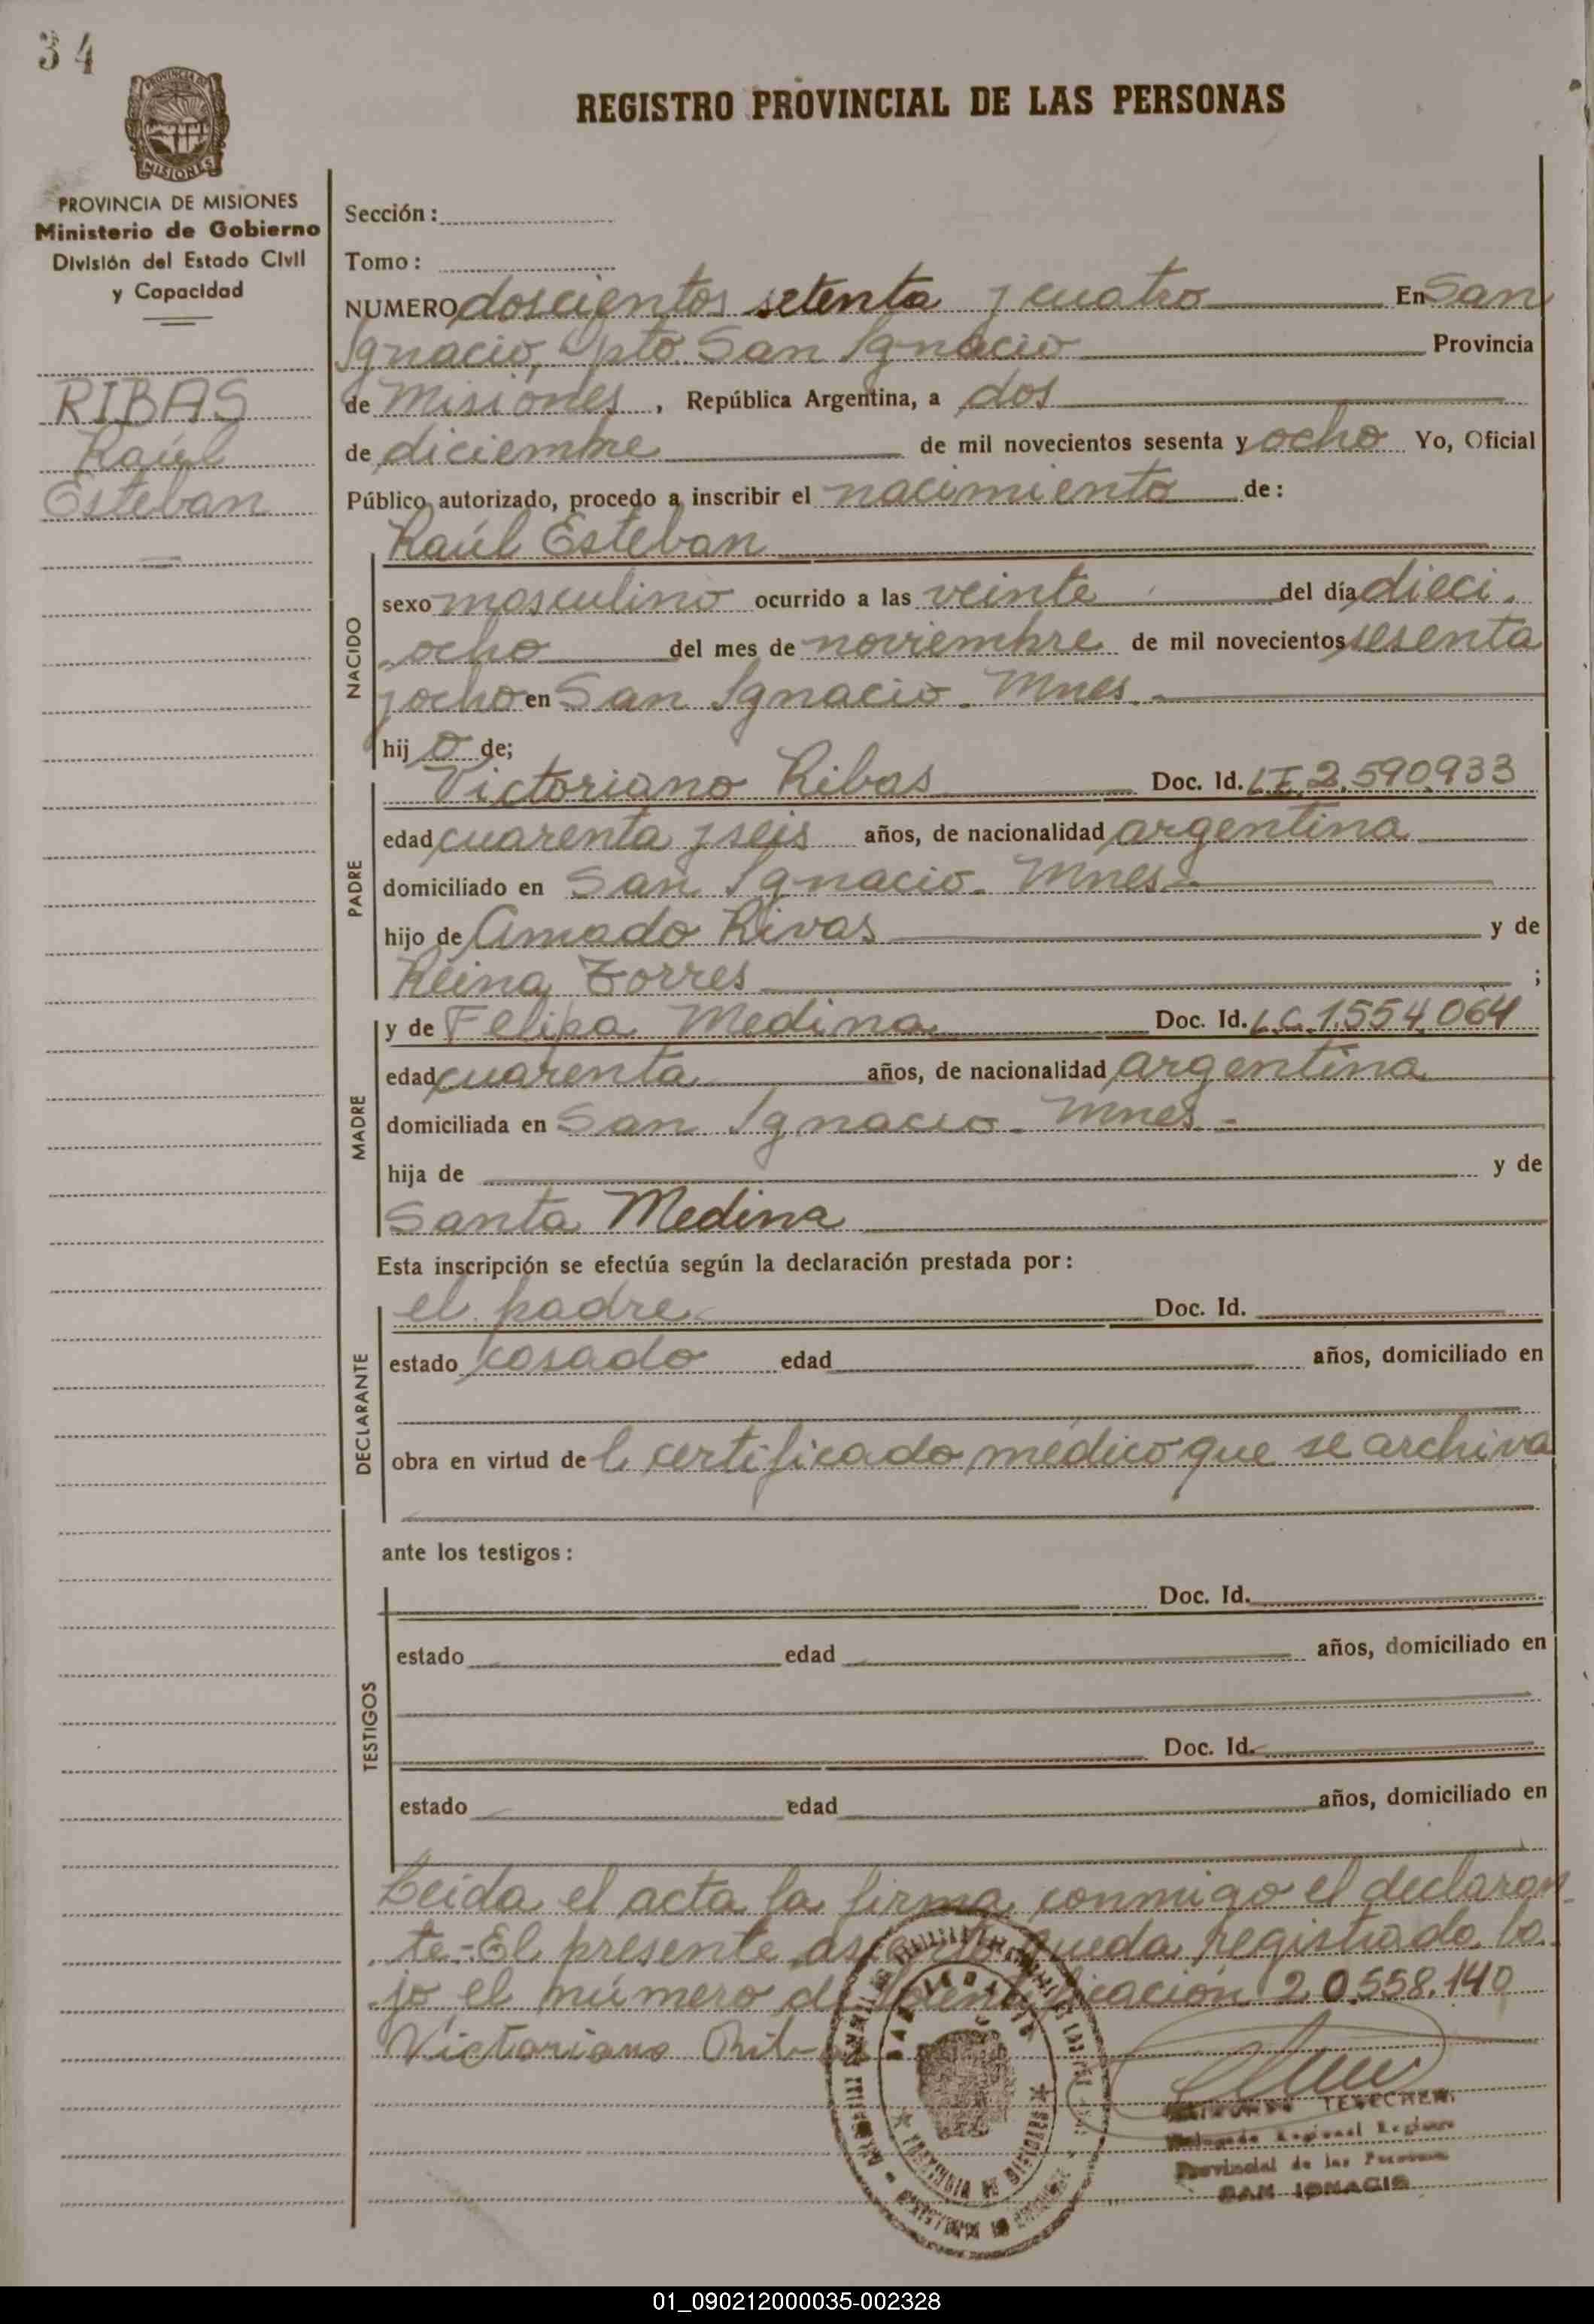 34
PROVINCIA DE
MISIONES
REGISTRO PROVINCIAL DE LAS PERSONAS
PROVINCIA DE MISIONES
Ministerio de Gobierno
División del Estado Civil
y Capacidad
RIBAS
Raúl
Esteban
Sección:
Tomo:
NUMERO doscientos setenta y cuatro En San
Ignacio, Dpto San Ignacio Provincia
de Misiones, República Argentina, a dos
de diciembre de mil novecientos sesenta y ocho Yo, Oficial
Público autorizado, procedo a inscribir el nacimiento de:
NACIDO
Raúl Esteban
sexo masculino ocurrido a las veinte del día dieci
ocho del mes de noviembre de mil novecientos sesenta
y ocho en San Ignacio. Mnes.
hij o de;
PADRE
Victoriano Ribas Doc. Id. L.E. 2.590.933
edad cuarenta y seis años, de nacionalidad argentina
domiciliado en San Ignacio. Mnes.
hijo de Amado Rivas y de
Reina Torres ;
MADRE
y de Felipa Medina Doc. Id. L.C. 1.554.064
edad cuarenta años, de nacionalidad argentina
domiciliada en San Ignacio. Mnes.
hija de y de
Santa Medina
Esta inscripción se efectúa según la declaración prestada por:
DECLARANTE
el padre Doc. Id.
estado casado edad años, domiciliado en
obra en virtud de l certificado médico que se archiva
ante los testigos:
TESTIGOS
Doc. Id.
estado edad años, domiciliado en
Doc. Id.
estado edad años, domiciliado en
Leida el acta la firma conmigo el declaran
te.-El presente asiento queda registrado ba
jo el número de identificación 20.558.140
Victoriano Ribas
TESECHEN
Delegado Regional Registro
Provincial de las Personas
SAN IGNACIO
01_090212000035-002328